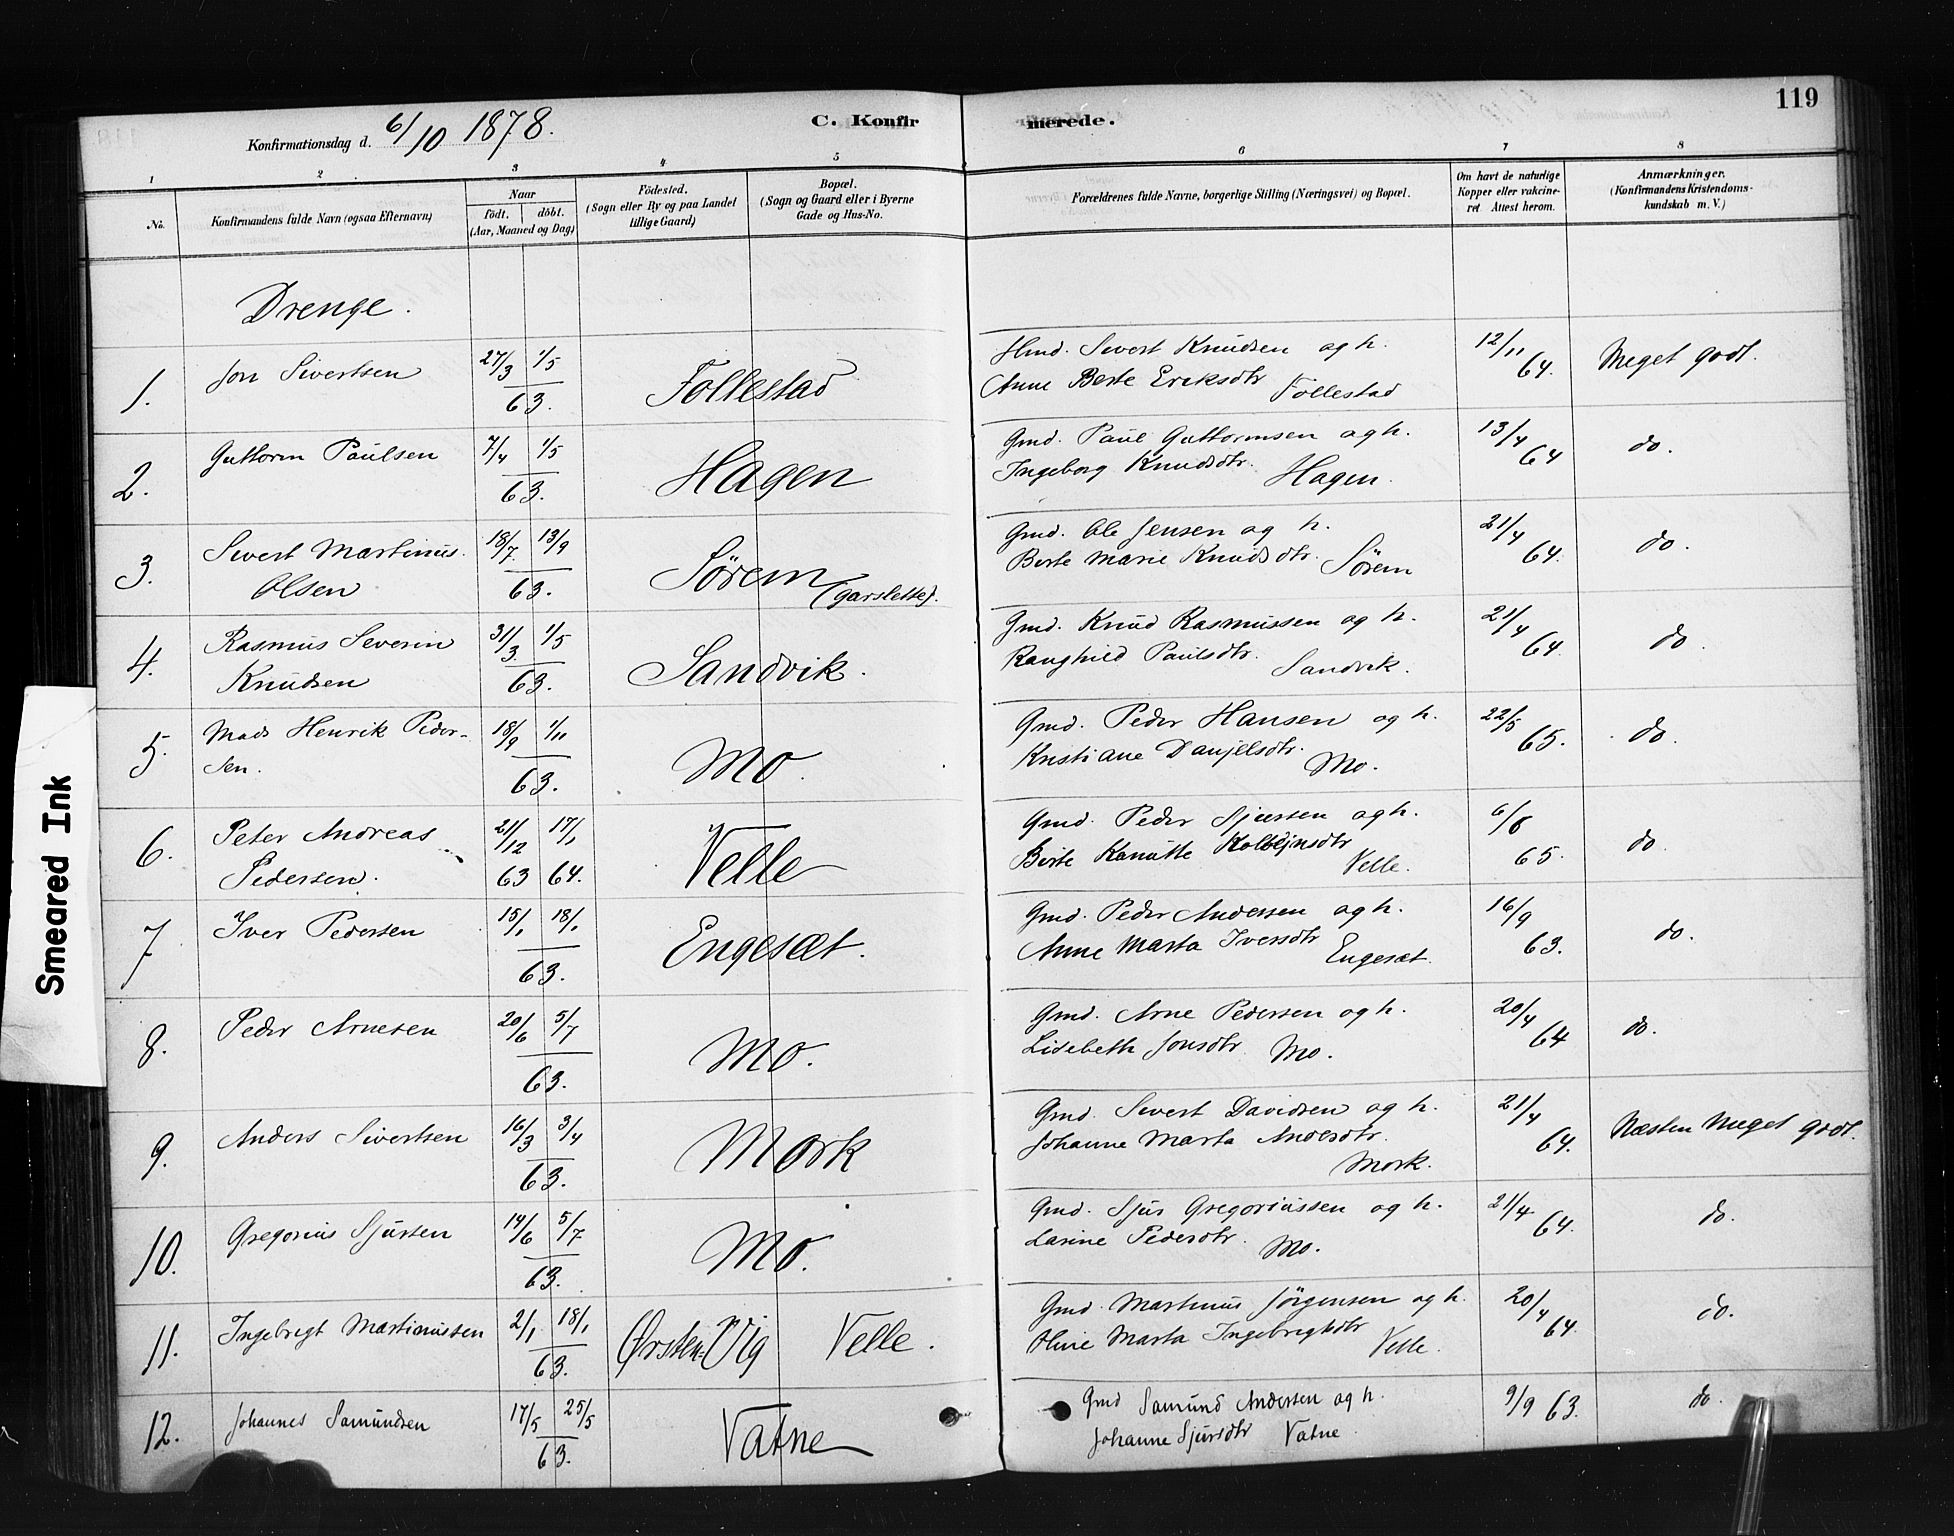 119
Konfirmationsdag d. 6/10 1878.
C. Konfirmerede.
1 2 3 4 5 6 7 8
No.
Konfirmandens fulde Navn (ogsaa Efternavn)
Naar
födt. döbt.
(Aar, Maaned og Dag)
Födested.
(Sogn eller By og paa Landet
tillige Gaard)
Bopæl.
(Sogn og Gaard eller i Byerne
Gade og Hus-No.
Forældrenes fulde Navne, borgerlige Stilling (Næringsvei) og Bopæl.
Om havt de naturlige
Kopper eller vakcine-
ret. Attest herom.
Anmærkninger.
(Konfirmandens Kristendoms-
kundskab m. V.)
Drenge.
1. Jon Sivertsen 27/3 1/5 63. Follestad
Hmd. Sivert Knudsen og h.
Anne Berte Eriksdtr Follestad
12/11 64. Meget godt.
2. Guttorm Paulsen 7/4 1/5 63. Hagen
Gmd. Paul Guttormsen og h.
Ingeborg Knudsdtr. Hagen.
13/4 64 do.
3. Sivert Martinus
Olsen 18/7 13/9 63. Sørem (Garslette).
Gmd. Ole Jensen og h.
Berte Marie Knudsdtr. Sörem
21/4 64. do.
4. Rasmus Severin
Knudsen 31/3 1/5 63. Sandvik.
Gmd. Knud Rasmussen og h.
Ranghild Paulsdtr. Sandvik.
21/4 64. do.
5. Mads Henrik Peder-
sen. 18/9 1/11 63. Mo.
Gmd. Peder Hansen og h.
Kristiane Danjelsdtr. Mo.
22/5 65. do.
6. Peter Andreas
Pedersen. 21/12 63 17/1 64. Velle
Gmd. Peder Sjursen og h.
Berte Kanutte Kolbejnsdtr Velle.
65. do
7 Iver Pedersen 15/1 18/1 63. Engesæt.
Gmd. Peder Andersen og h.
Anne Marta Iversdtr Engesæt.
16/9 63. do.
8. Peder Arnesen 20/6 5/7 63. Mo.
Gmd. Arne Pedersen og h.
Lisebeth Jonsdtr Mo.
20/4 64 do.
9. Anders Sivertsen 16/3 3/4 63. Mork
Gmd. Sivert Davidsen og h.
Johanne Marta Andersdtr.
Mork.
21/4 64. Næsten Meget godt.
10. Gregorius Sjursen 14/6 5/7 63. Mo.
Gmd. Sjur Gregoriussen og h.
Larine Pedersdtr. Mo.
21/4 64. do.
11. Ingebrigt Martinussen 2/1 18/1 63. Ørsten-Vig Velle.
Gmd. Martinus Jörgensen og h.
Oline Marta Ingebrigtsdtr Velle.
20/4 64. do.
12. Johannes Samundsen 17/5 25/5 63. Vatne
Gmd Samund Andersen og h.
Johanne Sjursdtr Vatne
9/9 63. do
Smeared Ink